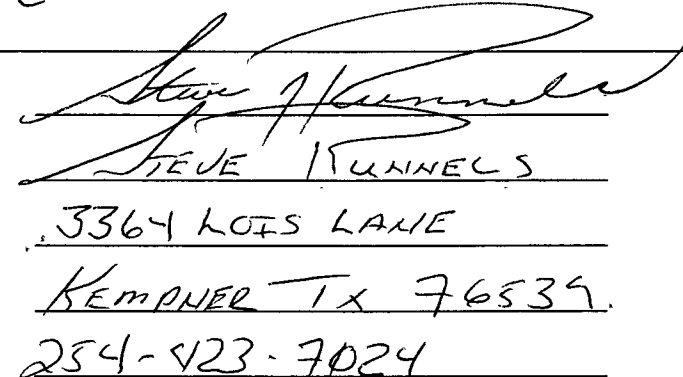 Steve Runnels
STEVE RUNNELS
3364 LOIS LANE
KEMPNER TX 76539.
254-423-7024